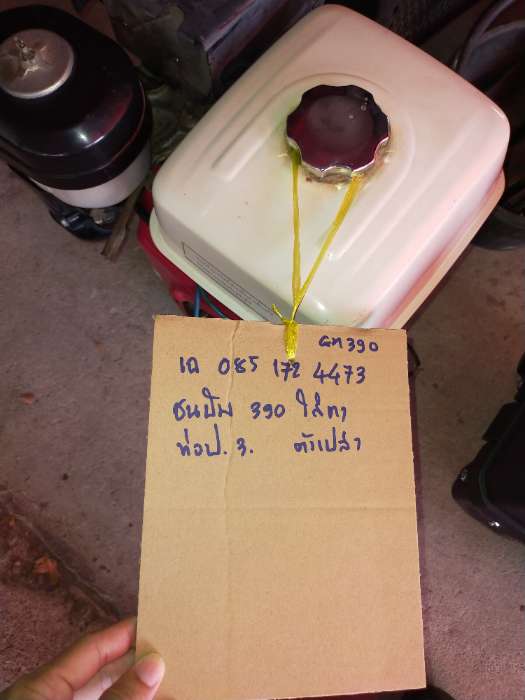 GM390
เฉ 085 172 4473
ชนปั๊ม 390
ท่อป. 3. ตัวเปล่า